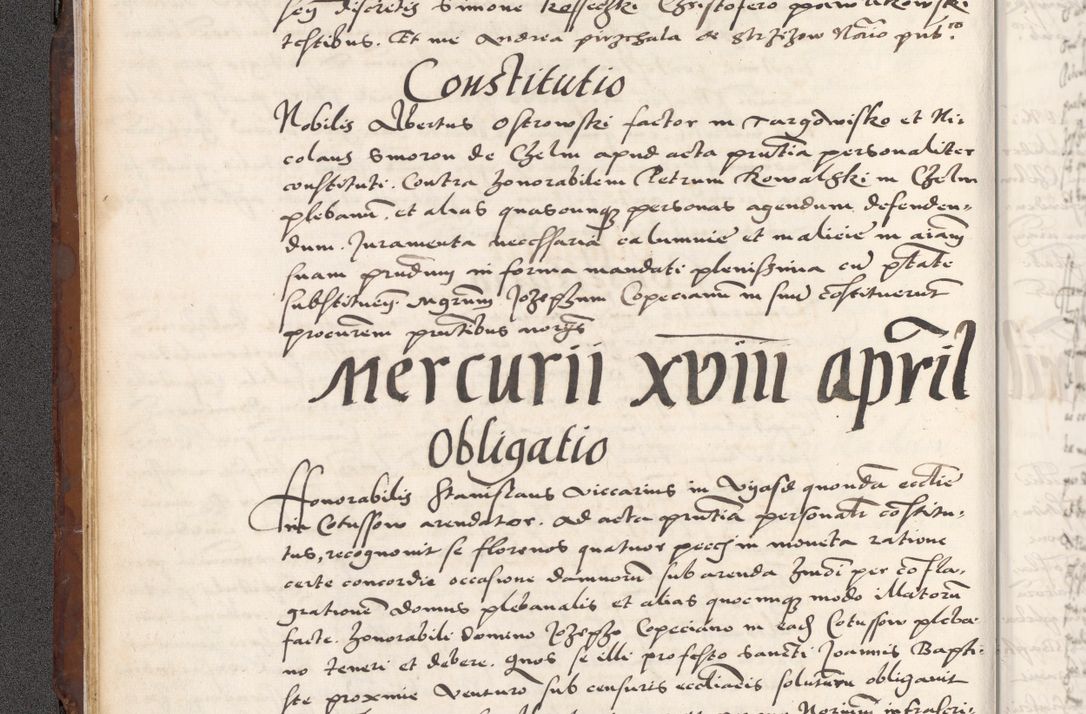 sen discretis Simone Christofero
testibus. Et me Andrea pirzchala de Strzizow Nōrio pub^co.
Constitutio
Nobilis Albertus Ostrowski factor in Targowisko et Ni-
colaus Smoron de Chelm apud acta pn̄tia personaliter
constituti. Contra honorabilem Petrum Kowalski in Chelm
plebanū. et alias quascunq personas agendum defenden-
dum. Juramenta necessaria calumnie et malicie in aīam
suam prn̄dum in forma mandati plenissima cū ptāte
substituen. Mgrum Jozephum Copecianum in suū cōstituerunt
procūrem prn̄tibus norijs
Mercurii xviii apr̄il
Obligatio
Honorabilis Stanislaus viccarius in quondā ecclīe
in Cotussow arendator. Ad acta prn̄tia personalr̄ cōstitu-
tus, recognovit se florenos quatuor pecch in moneta ratione
certe concordie occasione damnorū sub arenda per cōfla-
grationē domus plebanalis et alias quocunq modo illatorū
facte. Honorabili Domino Jozepho Copeciano in ead Cotussow pleba
no teneri et debere. Quos se illi pro festo sancti Joannis Bapti-
ste proxime venturo sub censuris eccl̄iacis soluturū obligavit